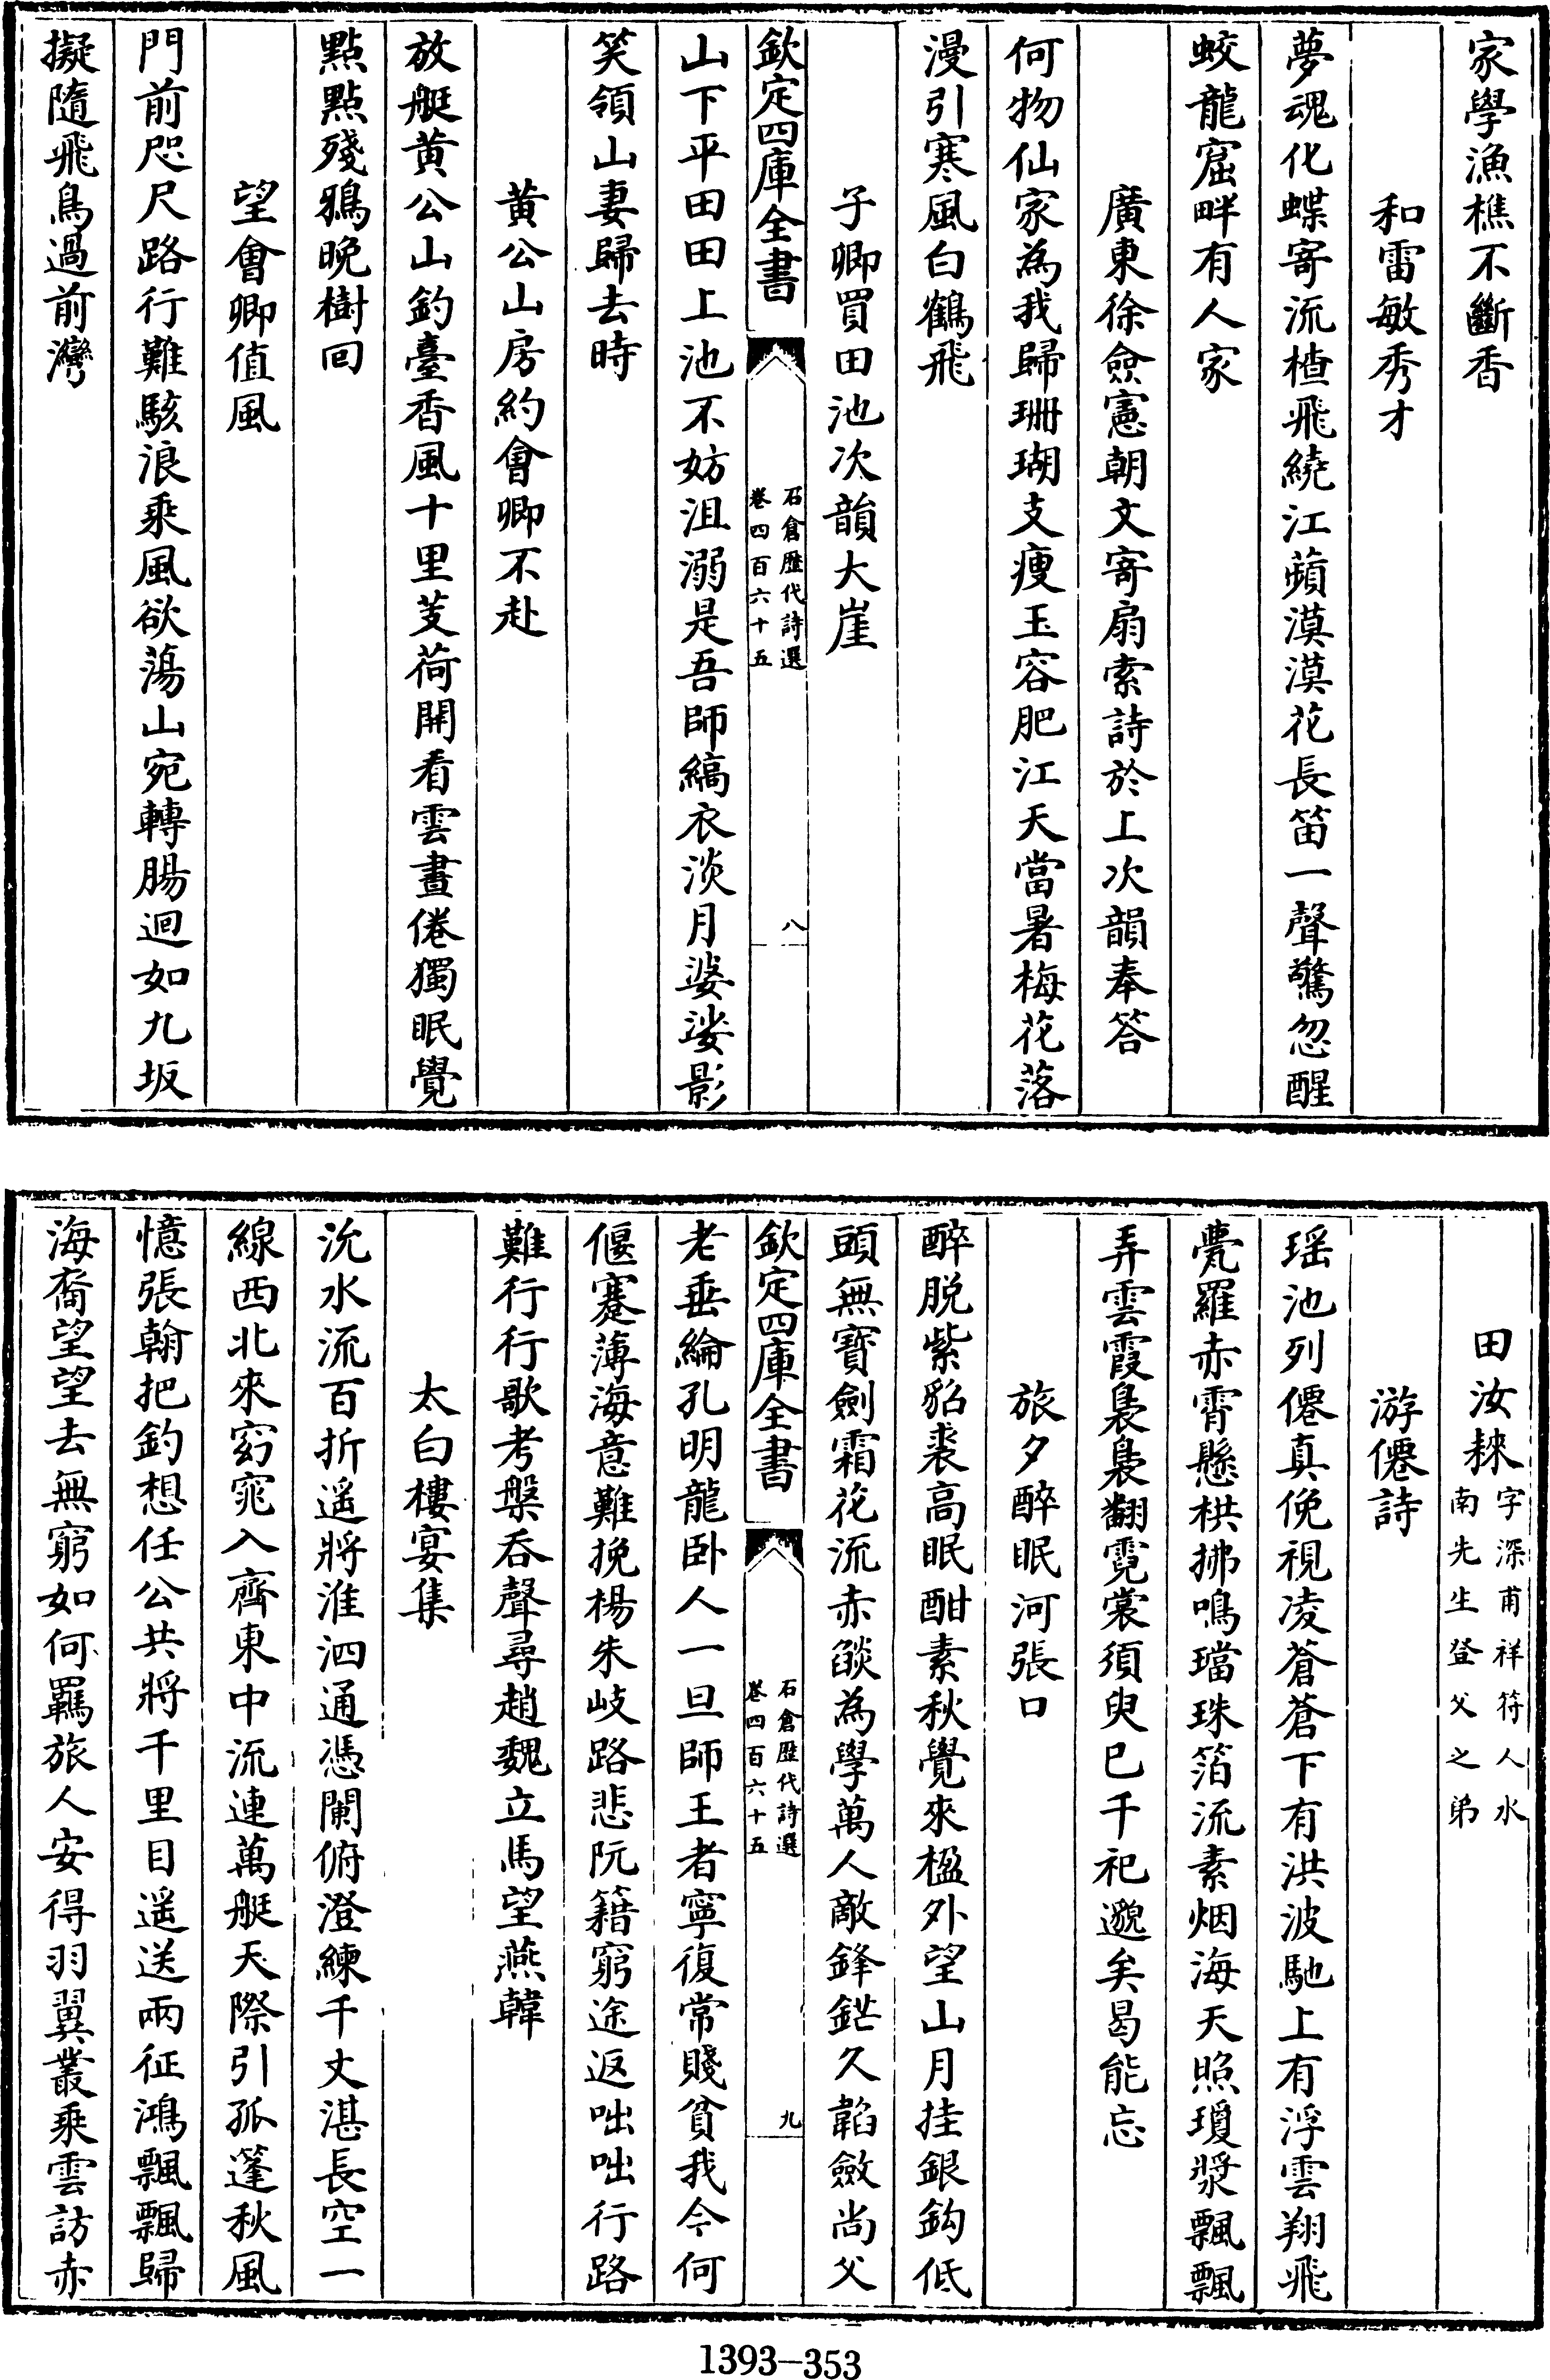 家學漁樵不斷香
和雷敏秀才
夢魂化蝶寄流楂飛繞江蘋漠漠花長笛一聲驚忽醒
蛟龍窟畔有人家
廣東徐僉憲朝文寄扇索詩於上次韻奉答
何物仙家為我歸珊瑚支瘦玉容肥江天當暑梅花落
漫引寒風白鶴飛
子卿買田池次韻大崖
欽定四庫全書
石倉歷代詩選
卷四百六十五
八
山下平田田上池不妨沮溺是吾師縞衣淡月婆娑影
笑領山妻歸去時
黃公山房約會卿不赴
放艇黃公山釣臺香風十里芰荷開看雲晝倦獨眠覺
點點殘鴉晚樹回
望會卿值風
門前咫尺路行難駭浪乘風欲蕩山宛轉腸迴如九坂
擬隨飛鳥過前灣
田汝𦓺
字深甫祥符人水
南先生登父之弟
游僊詩
瑶池列僊真俛視凌蒼蒼下有洪波馳上有浮雲翔飛
甍羅赤霄懸栱拂鳴璫珠箔流素烟海天照瓊漿飄飄
弄雲霞裊裊翻霓裳須臾已千祀邈矣曷能忘
旅夕醉眠河張口
醉脱紫貂裘高眠酣素秋覺來楹外望山月挂銀鈎低
頭無寶劍霜花流赤燄為學萬人敵鋒鋩久韜斂尚父
欽定四庫全書
石倉歷代詩選
卷四百六十五
九
老垂綸孔明龍卧人一旦師王者寧復常賤貧我今何
偃蹇薄海意難挽楊朱岐路悲阮籍窮途返咄咄行路
難行行歌考槃吞聲尋趙魏立馬望燕韓
太白樓宴集
沇水流百折遥將淮泗通憑闌俯澄練千丈湛長空一
線西北來窈窕入齊東中流連萬艇天際引孤篷秋風
憶張翰把釣想任公共將千里目遥送兩征鴻飄飄歸
海裔望望去無窮如何羈旅人安得羽翼叢乘雲訪赤
1393-353